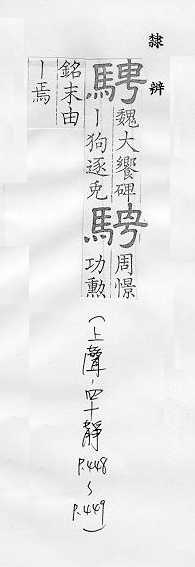 隸辨
騁
魏大饗碑
丨狗逐免
騁
周憬
功勲
銘末由
丨焉
(上聲,四十靜
P.448
~
P.449)